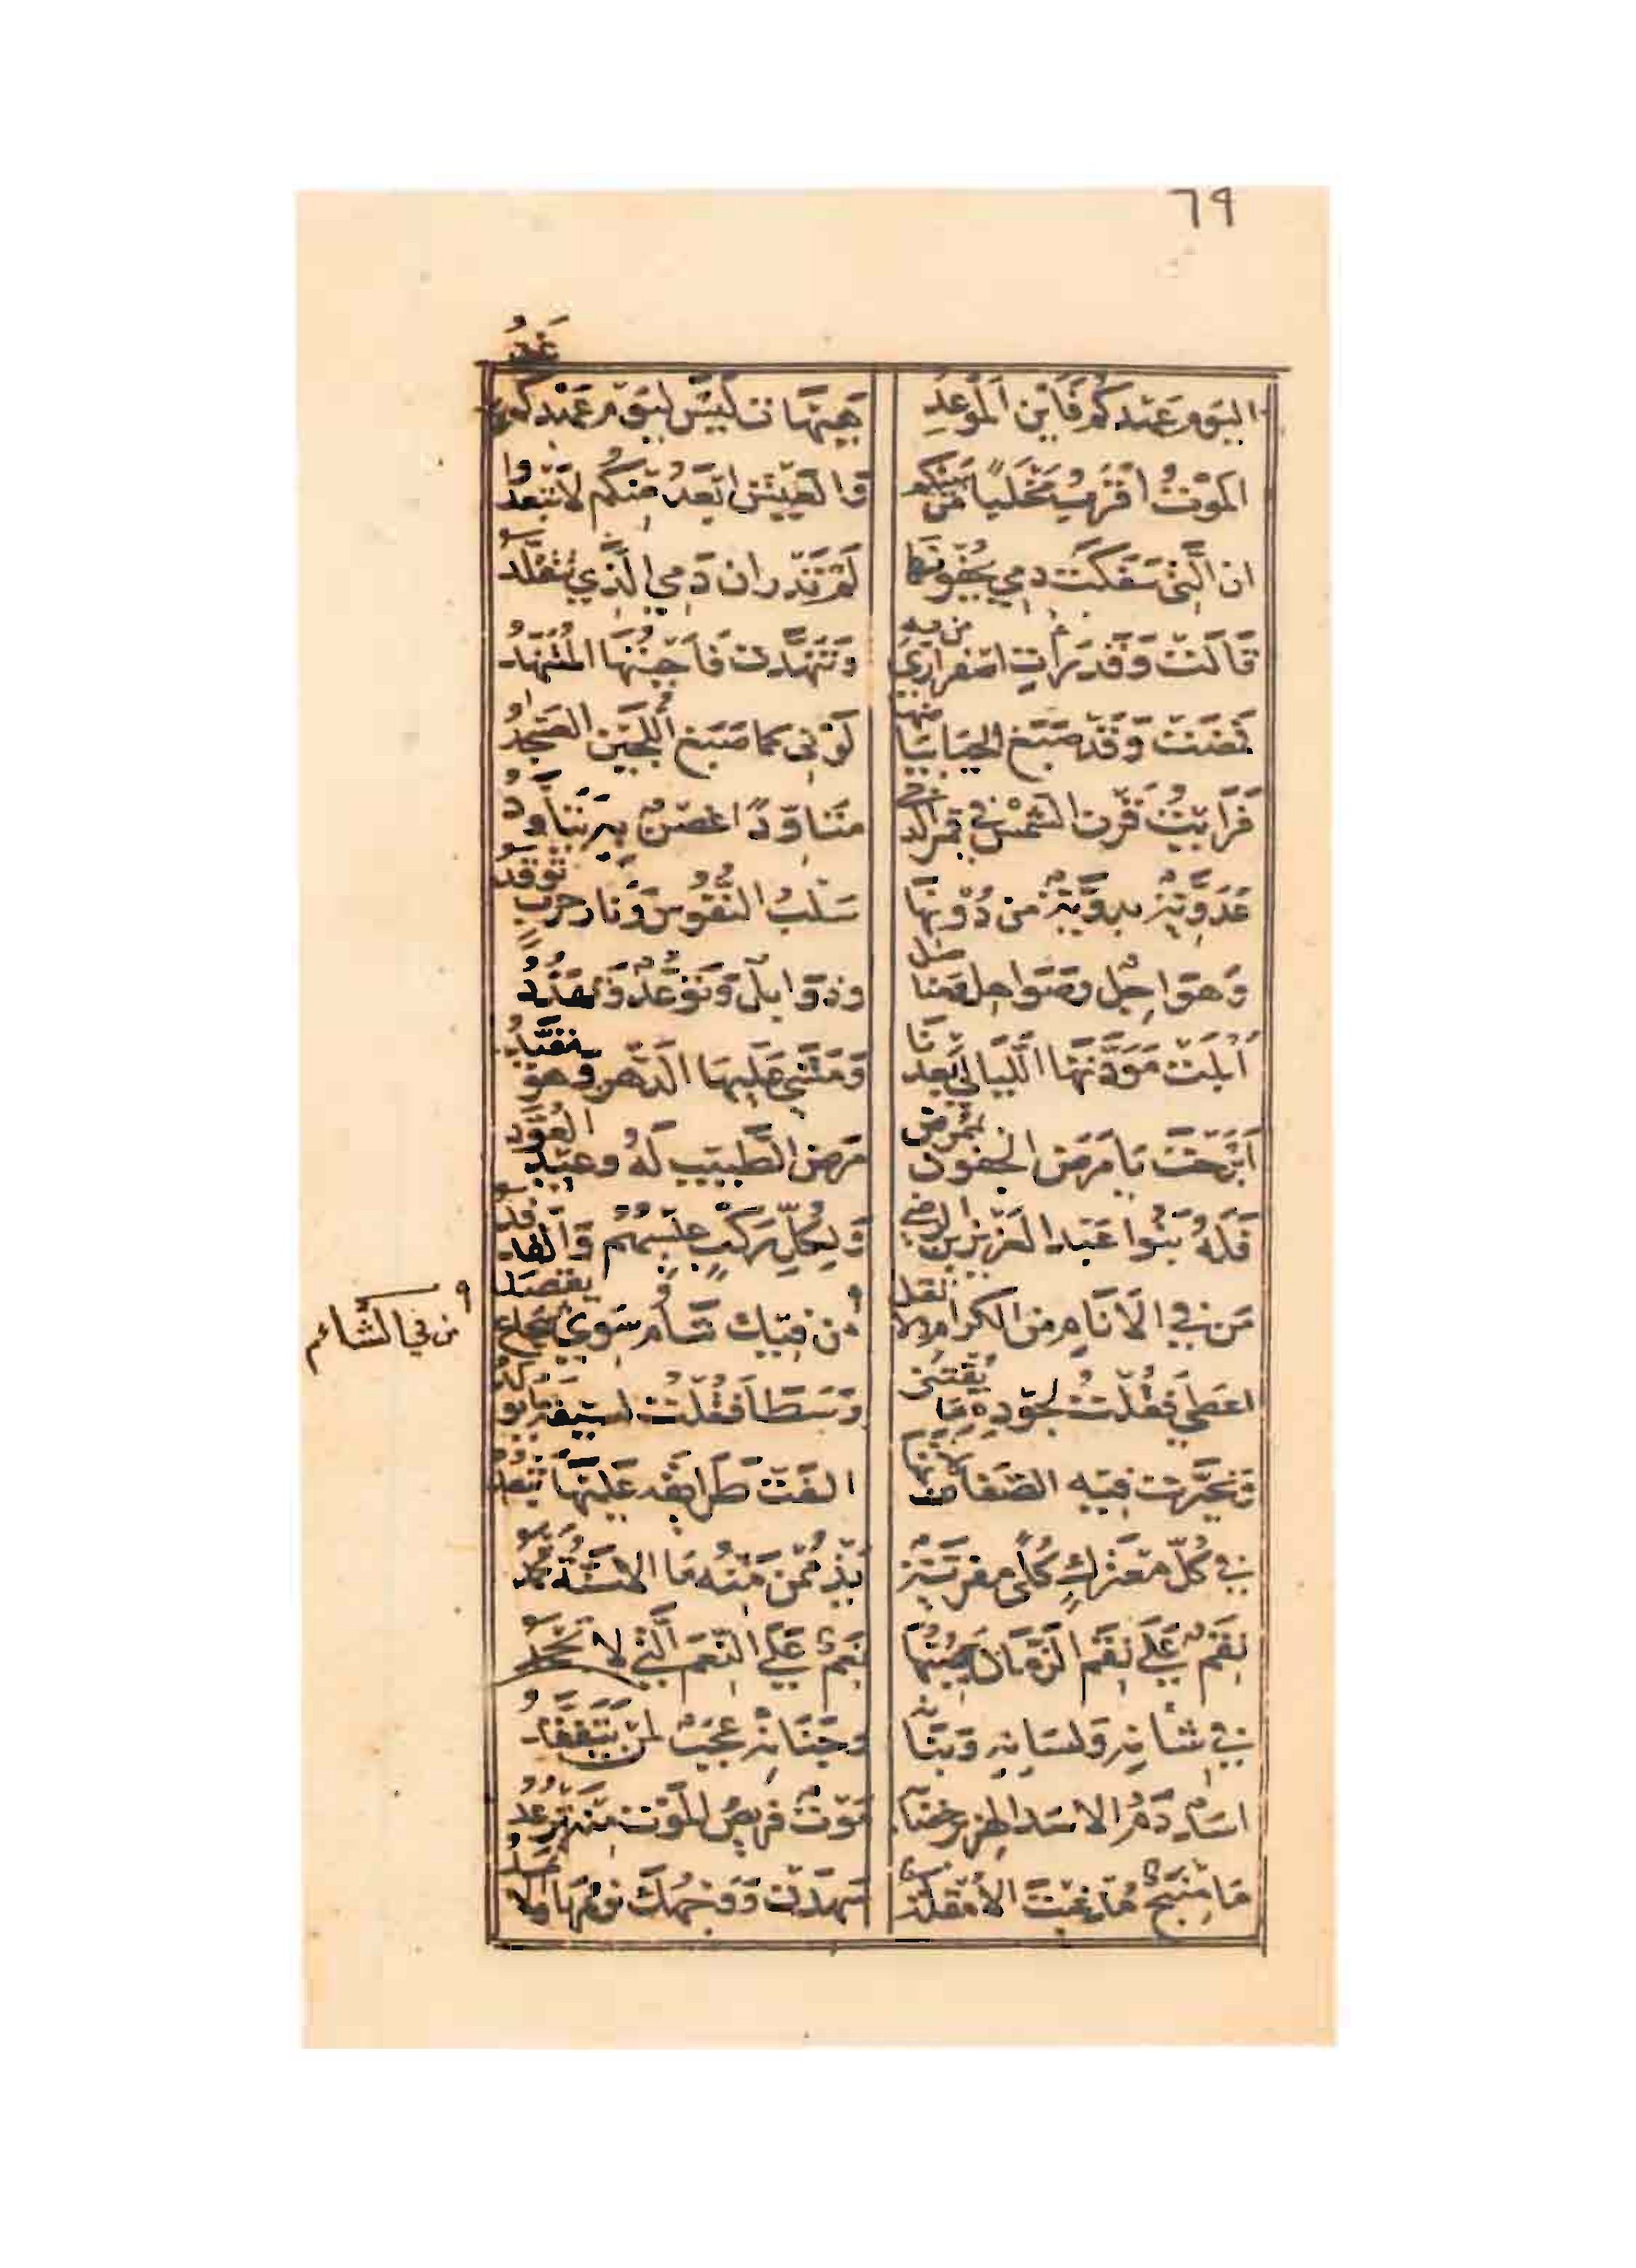 ٦٩
اليوم عهدكم فاين الموعد هيهات ليس ليوم عهدكم غد
الموت اقرب مخلبا من بينكم والعيش ابعد منكم لا تبعدوا
ان التي سفكت دمي بجفونها لم تدر ان دمي الذي تتقلد
قالت وقد رات اصفراري من به وتنهدت فاجبتها المتنهد
فمضت وقد صبغ الحيا بياضها لوني كما صبغ اللجين العسجد
فرايت قرن الشمس في قمر الدجى متاودا غصن به يتاود
عدوية بدوية من دونها سلب النفوس ونار حرب توقد
وهواجل وصواهل ومناصل وذوابل وتوعد وتهدد
ابلت مودتها الليالي بعدنا ومشى عليها الدهر وهو مقيد
ابرحت يا مرض الجفون بممرض مرض الطبيب له وعيد العود
فله بنوا عبد العزيز بن الرضى ولكل ركب عيسهم والفدفد
من في الانام من الكرام ولا تقل من فيك شام سوى شجاع يقصد
من في الشائم
اعطى فقلت لجوده ما يقتنى وسطا فقلت لسيفه ما يولد
تحيرت فيه الصفات لانها الفت طرائقه عليها تبعد
في كل معترك كلى مفرية يذممن منه ما الاسنة تحمد
نقم على نقم الزمان يصبها نعم على النعم التي لا تجحد
في شانه ولسانه وبنانه وجنانه عجب لمن يتفقد
اسد دم الاسد الهزبر خضابه موت فريص الموت منه ترعد
ما منبج مذ غبت الا مقلة سهدت ووجهك نومها والاثمد